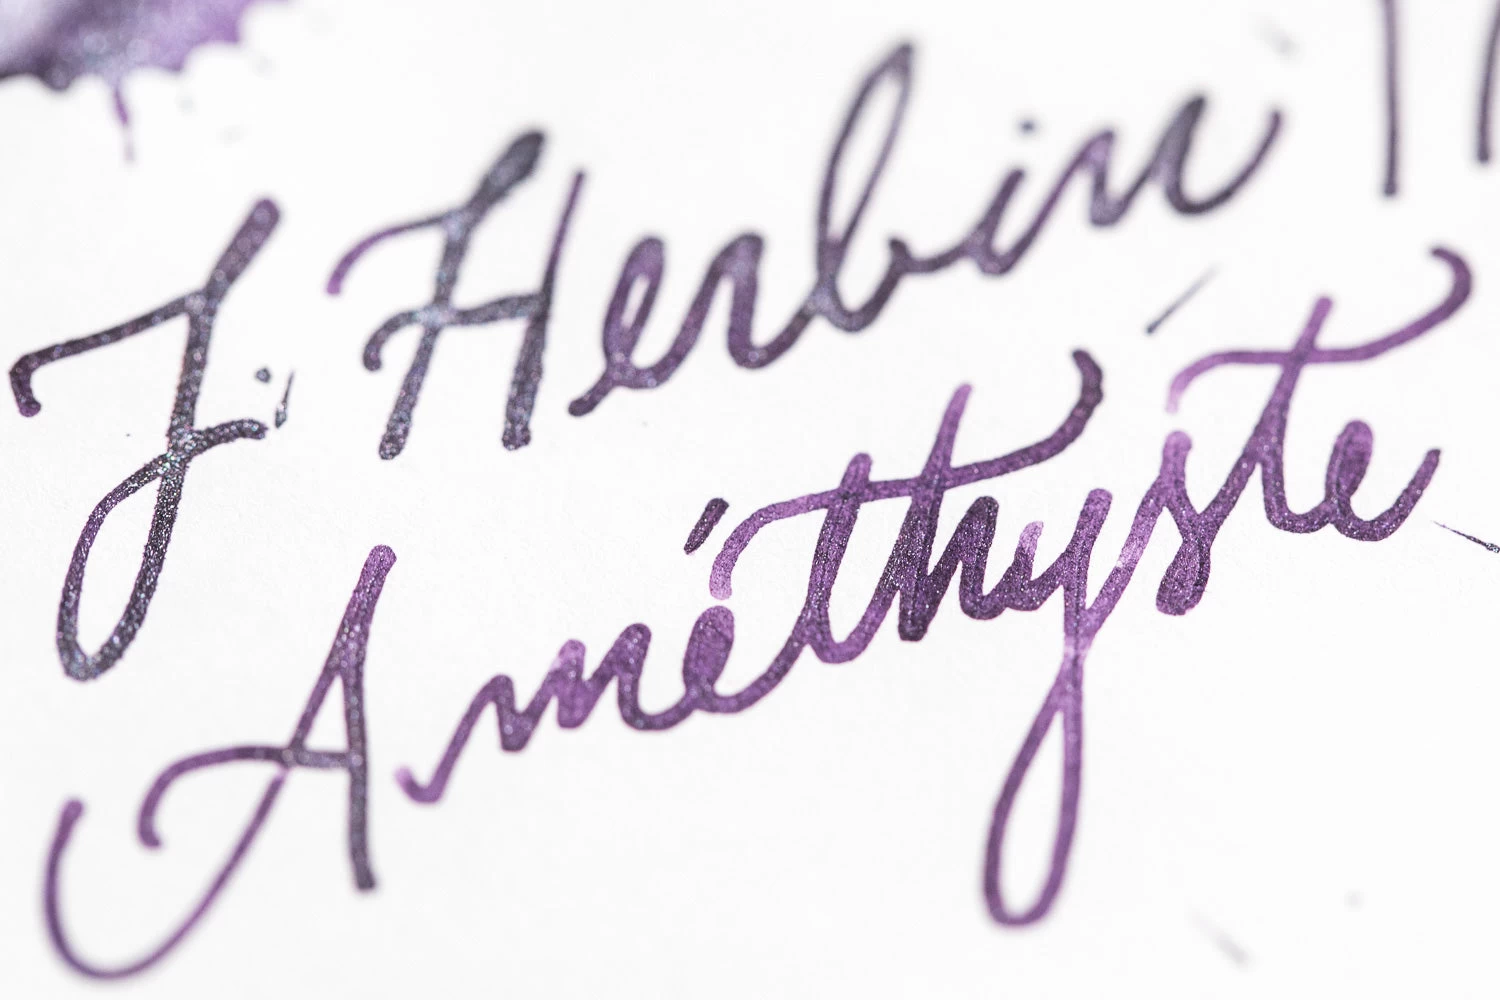 J. Herbin
Améthyste